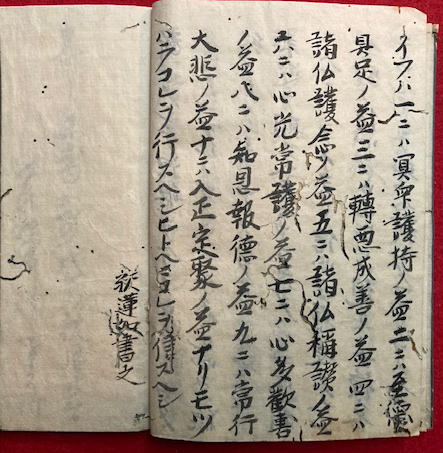 イフハ一ニハ冥衆護持ノ益二ニハ至德
具足ノ益三ニハ轉悪成善ノ益四ニハ
諸仏護念ノ益五ニハ諸仏稱讃ノ益
六ニハ心光常護ノ益七ニハ心多歓喜
ノ益八ニハ知恩報德ノ益九ニハ常行
大悲ノ益十ニハ入正定聚ノ益ナリモツ
ハラコレヲ行スヘシヒトヘニコレヲ信スヘシ
釈蓮如書之